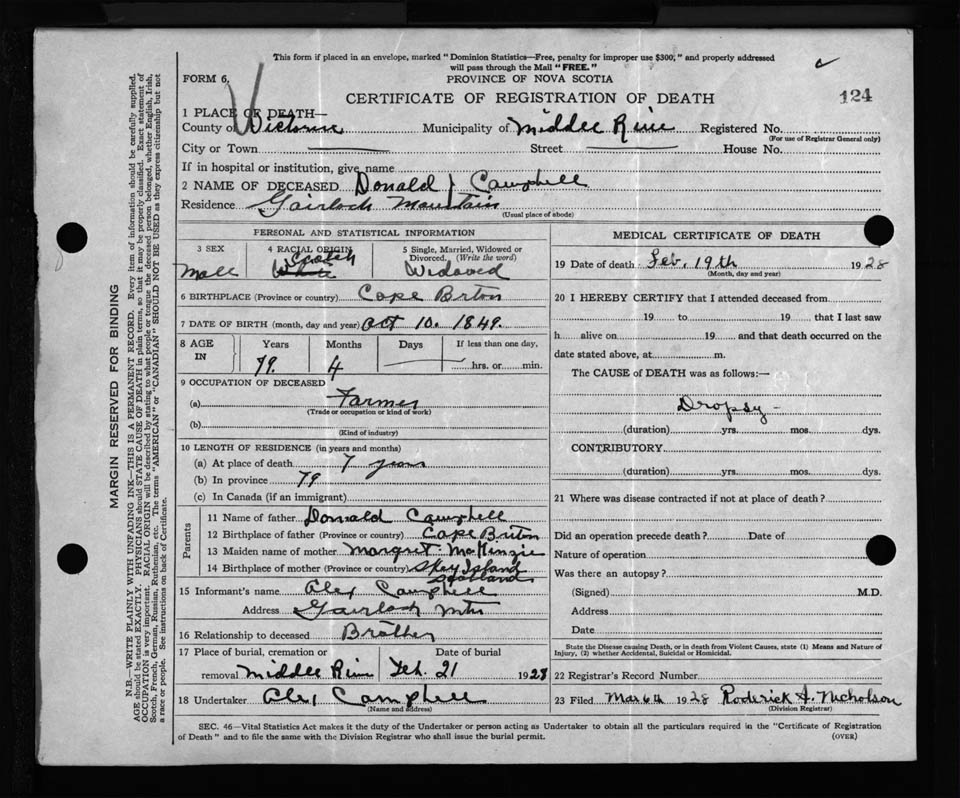 This form if placed in an envelope, marked "Dominion Statistics—Free, penalty for improper use $300," and properly addressed
will pass through the Mail "FREE."
FORM 6,
PROVINCE OF NOVA SCOTIA
CERTIFICATE OF REGISTRATION OF DEATH
124
1 PLACE OF DEATH—
County of Victoria Municipality of Middle River Registered No.
(For use of Registrar General only)
City or Town Street House No.
If in hospital or institution, give name
2 NAME OF DECEASED Donald J Campbell
Residence Gairloch Mountain
(Usual place of abode)
PERSONAL AND STATISTICAL INFORMATION
3 SEX 4 RACIAL ORIGIN 5 Single, Married, Widowed or
Divorced. (Write the word)
Scotch
Male White Widowed
6 BIRTHPLACE (Province or country) Cape Brton
7 DATE OF BIRTH (month, day and year) Oct 10. 1849.
8 AGE IN Years Months Days If less than one day,
79. 4 hrs. or min.
9 OCCUPATION OF DECEASED
(a) Farmer
(Trade or occupation or kind of work)
(b)
(Kind of industry)
10 LENGTH OF RESIDENCE (in years and months)
(a) At place of death 7 years
(b) In province 79
(c) In Canada (if an immigrant)
Parents
11 Name of father Donald Campbell
12 Birthplace of father (Province or country) Cape Briton
13 Maiden name of mother Margret McKenzie
14 Birthplace of mother (Province or country) Skey Island
Scotland
15 Informant's name Alex Campbell
Address Gairloch Mtn
16 Relationship to deceased Brother
17 Place of burial, cremation or Date of burial
removal Middle River Feb. 21 1928
18 Undertaker Alex Campbell
(Name and address)
MEDICAL CERTIFICATE OF DEATH
19 Date of death Feb, 19th 1928
(Month, day and year)
20 I HEREBY CERTIFY that I attended deceased from
19 to 19 that I last saw
h alive on 19 and that death occurred on the
date stated above, at m.
The CAUSE of DEATH was as follows:—
Dropsy -
(duration) yrs. mos. dys.
CONTRIBUTORY
(duration) yrs. mos. dys.
21 Where was disease contracted if not at place of death?
Did an operation precede death? Date of
Nature of operation
Was there an autopsy?
(Signed) M.D.
Address
Date
State the Disease causing Death, or in death from Violent Causes, state (1) Means and Nature of
Injury, (2) whether Accidental, Suicidal or Homicidal.
22 Registrar's Record Number
23 Filed Mar 6th 1928 Roderick A. Nicholson
(Division Registrar)
SEC. 46—Vital Statistics Act makes it the duty of the Undertaker or person acting as Undertaker to obtain all the particulars required in the "Certificate of Registration
of Death" and to file the same with the Division Registrar who shall issue the burial permit.
(OVER)
MARGIN RESERVED FOR BINDING
N.B.—WRITE PLAINLY WITH UNFADING INK—THIS IS A PERMANENT RECORD. Every item of information should be carefully supplied.
AGE should be stated EXACTLY. PHYSICIANS should STATE CAUSE OF DEATH in plain terms, so that it may be properly classified. Exact statement of
OCCUPATION is very important. RACIAL ORIGIN will be described by stating to what people or tongue the deceased person belonged, whether English, Irish,
Scotch, French, German, Russian, Ruthenian, etc. The terms "AMERICAN" or "CANADIAN" SHOULD NOT BE USED as they express citizenship but not
a race or people. See instructions on back of Certificate.